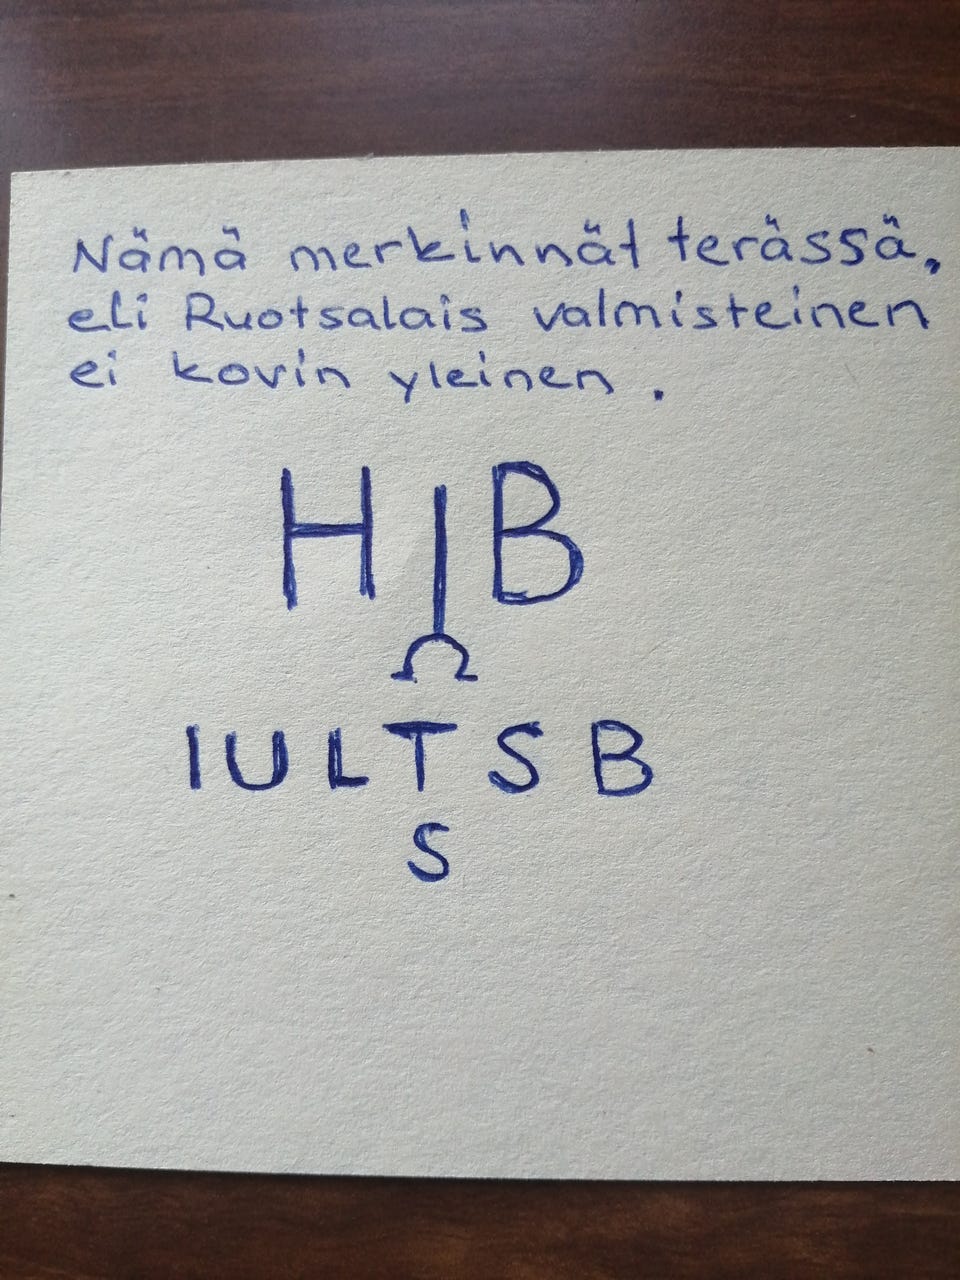 Nämä merkinnät terässä,
eli Ruotsalais valmisteinen
ei kovin yleinen.
H B
IULTSB
S